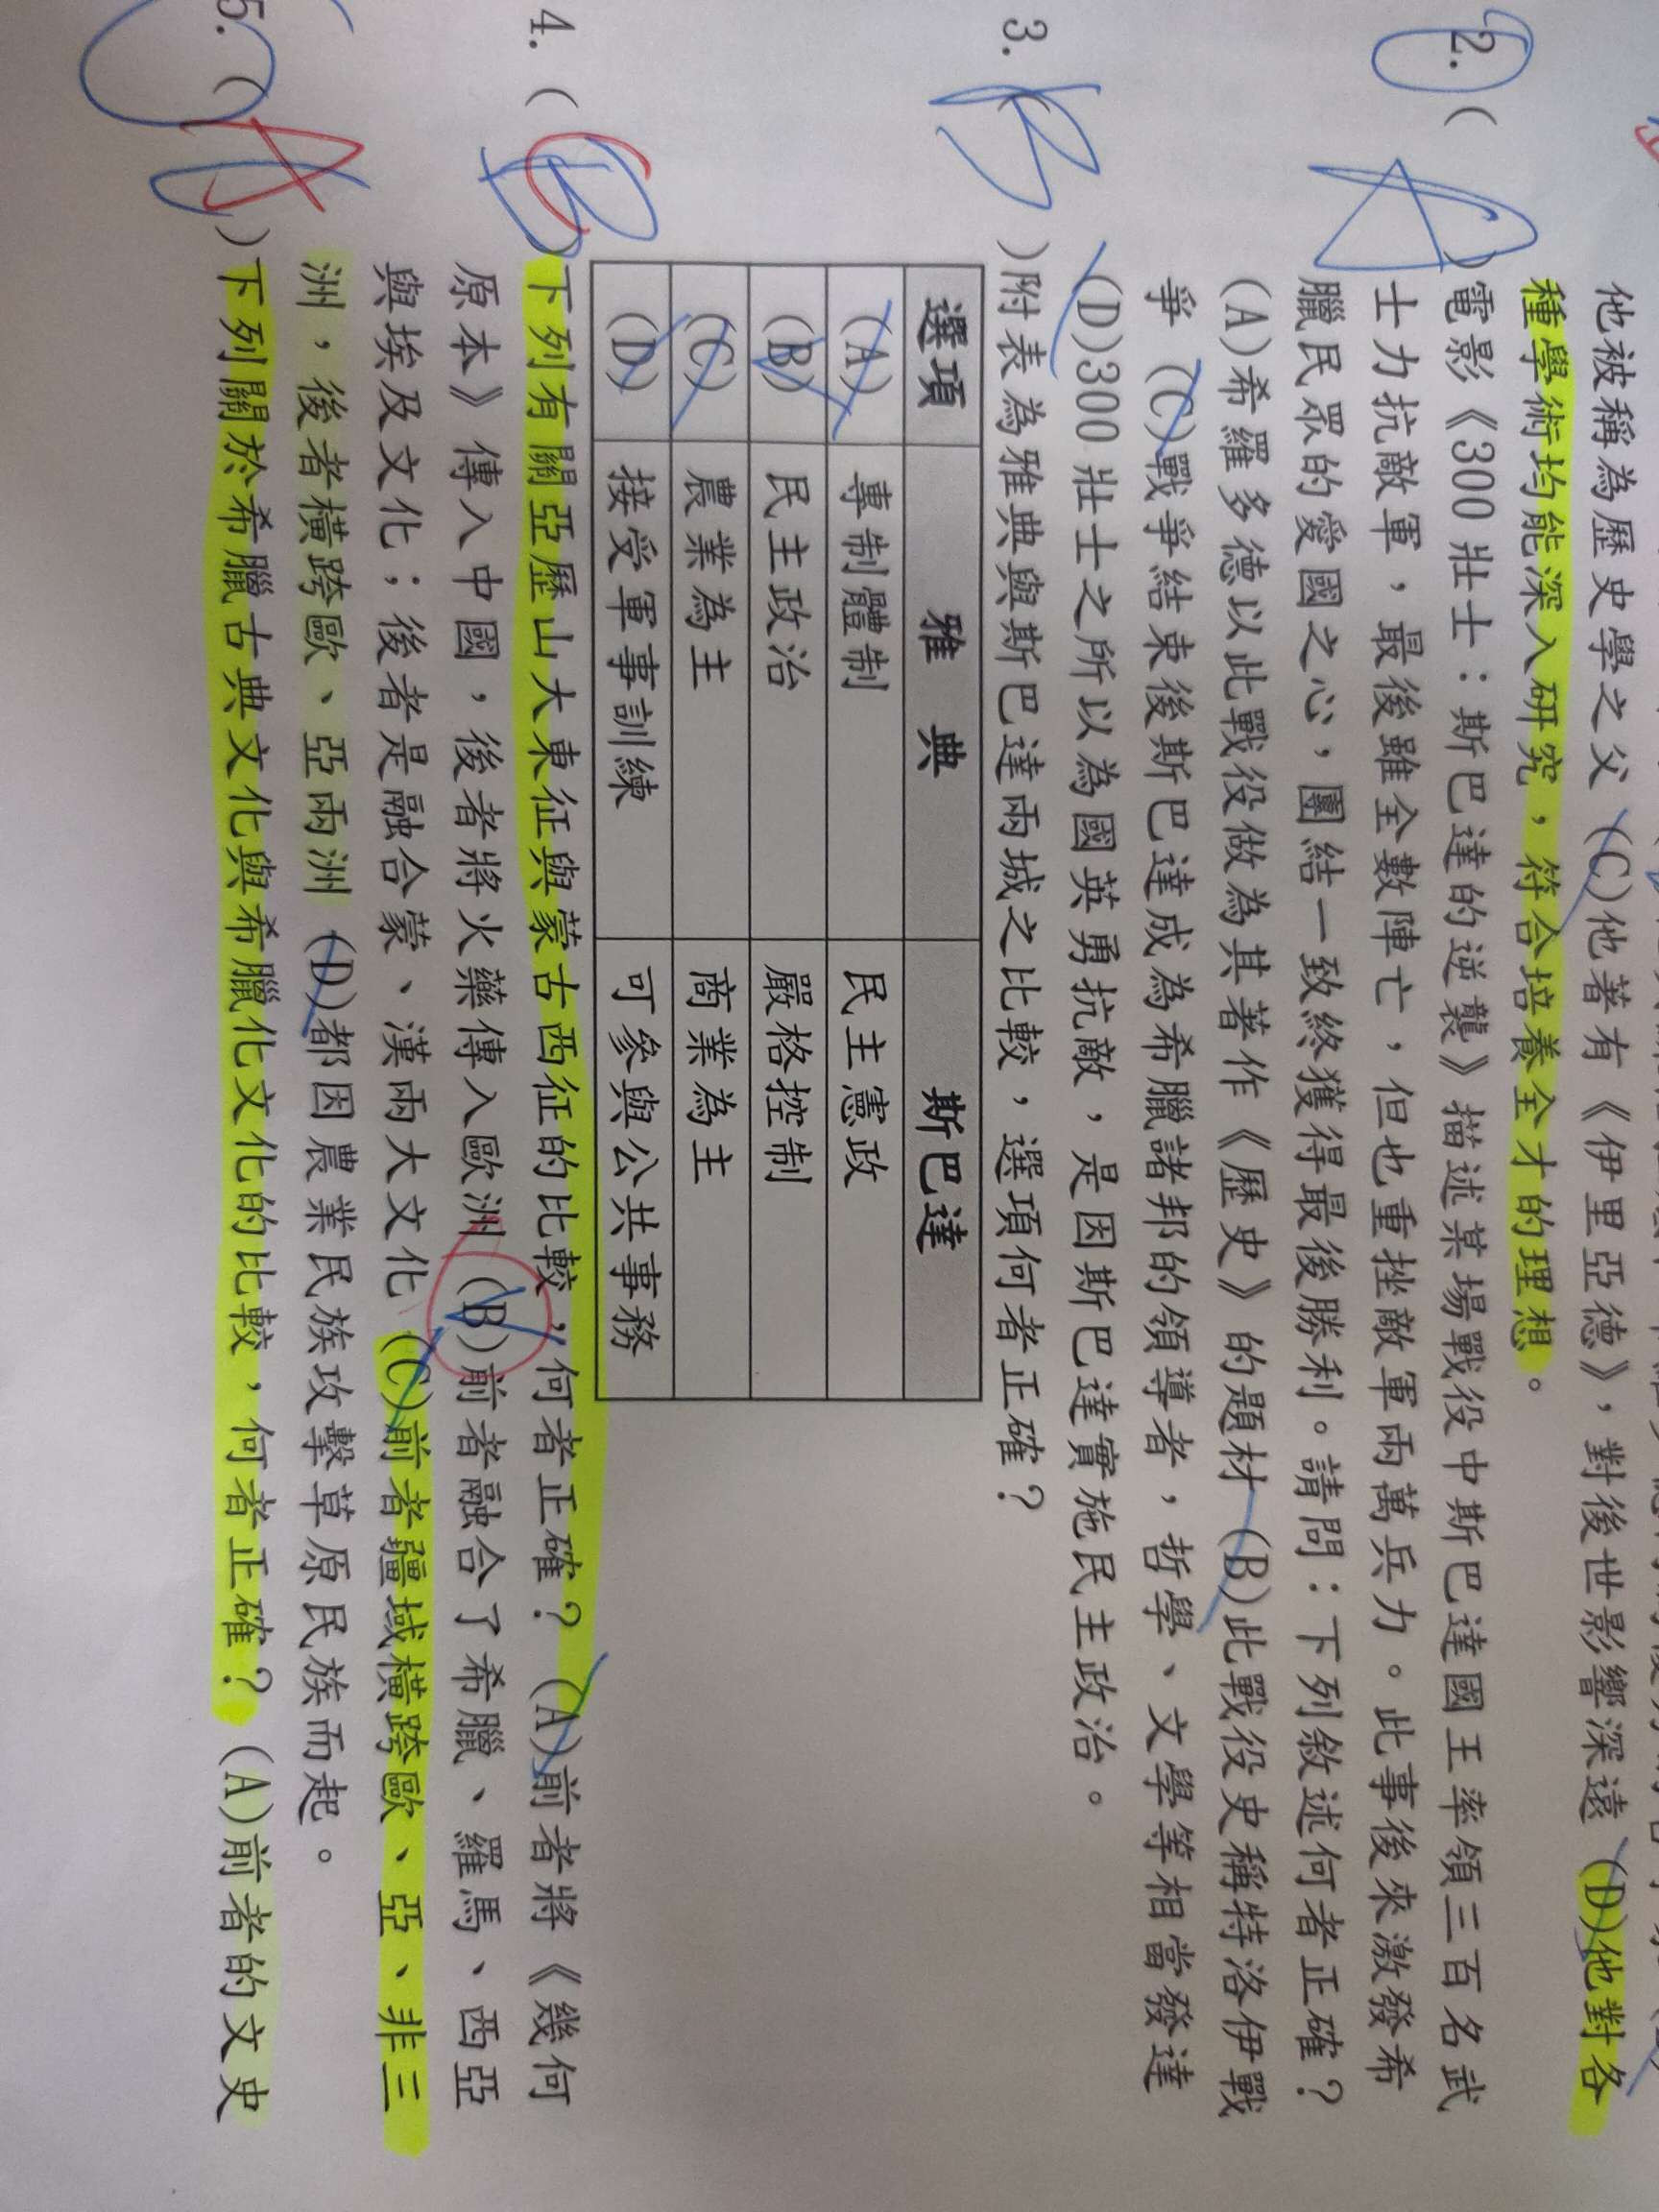 他被稱為歷史學之父 (C)他著有《伊里亞德》，對後世影響深遠 (D)他對各
種學術均能深入研究，符合培養全才的理想。
2. ( A )電影《300 壯士：斯巴達的逆襲》描述某場戰役中斯巴達國王率領三百名武
士力抗敵軍，最後雖全數陣亡，但也重挫敵軍兩萬兵力。此事後來激發希
臘民眾的愛國之心，團結一致終獲得最後勝利。請問：下列敘述何者正確？
(A)希羅多德以此戰役做為其著作《歷史》的題材 (B)此戰役史稱特洛伊戰
爭 (C)戰爭結束後斯巴達成為希臘諸邦的領導者，哲學、文學等相當發達
(D)300 壯士之所以為國英勇抗敵，是因斯巴達實施民主政治。
3. ( B )附表為雅典與斯巴達兩城之比較，選項何者正確？
選項 雅典 斯巴達
(A) 專制體制 民主憲政
(B) 民主政治 嚴格控制
(C) 農業為主 商業為主
(D) 接受軍事訓練 可參與公共事務
4. ( B )下列有關亞歷山大東征與蒙古西征的比較，何者正確？ (A)前者將《幾何
原本》傳入中國，後者將火藥傳入歐洲 (B)前者融合了希臘、羅馬、西亞
與埃及文化；後者是融合蒙、漢兩大文化 (C)前者疆域橫跨歐、亞、非三
洲，後者橫跨歐、亞兩洲 (D)都因農業民族攻擊草原民族而起。
5. ( A )下列關於希臘古典文化與希臘化文化的比較，何者正確？ (A)前者的文史